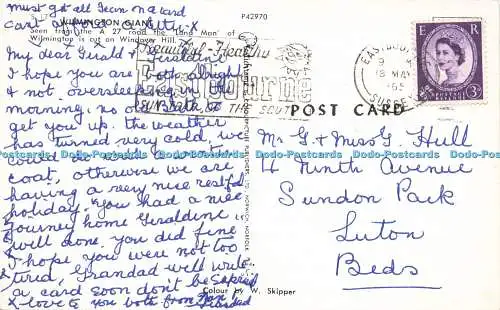 must get all seen on a card
S.177 P42970
cart or you'd be nutty-x
WILMINGTON GIANT
Seen from the A 27 road the "Land Man" of
Wilmington is cut on Windover Hill.
My dear Gerald & Geraldine
I hope you are both alright
& not oversleeping in the
morning, no old Nan to
get you up. the weather
has turned very cold, we
could do with a winter
coat, otherwise we are
having a very nice restful
holiday. you had a nice
journey home Geraldine,
well done. you did fine
I hope you were not too
tired, Grandad well write
a card soon don't be surprised
x love to you both from Nan & Grandad
Beautiful
Eastbourne
SUN TRAP OF THE SOUTH
EASTBOURNE
18 MAY
1965
SUSSEX
E R
POSTAGE REVENUE
3D
POST CARD
Mr G. & Miss G. Hull
4 Ninth Avenue
Sundon Park
Luton
Beds
NORWICH NORFOLK
Colour by W. Skipper
Dodo-Postcards Dodo-Postcards Dodo-Postcards Dodo-Postcards